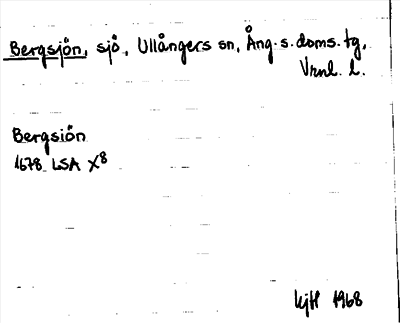 Bergsjön, sjö, Ullångers sn, Ång.s.doms.tg,
Vrnl. l.
Bergsiön
1678 LSA X8
kjH 1968